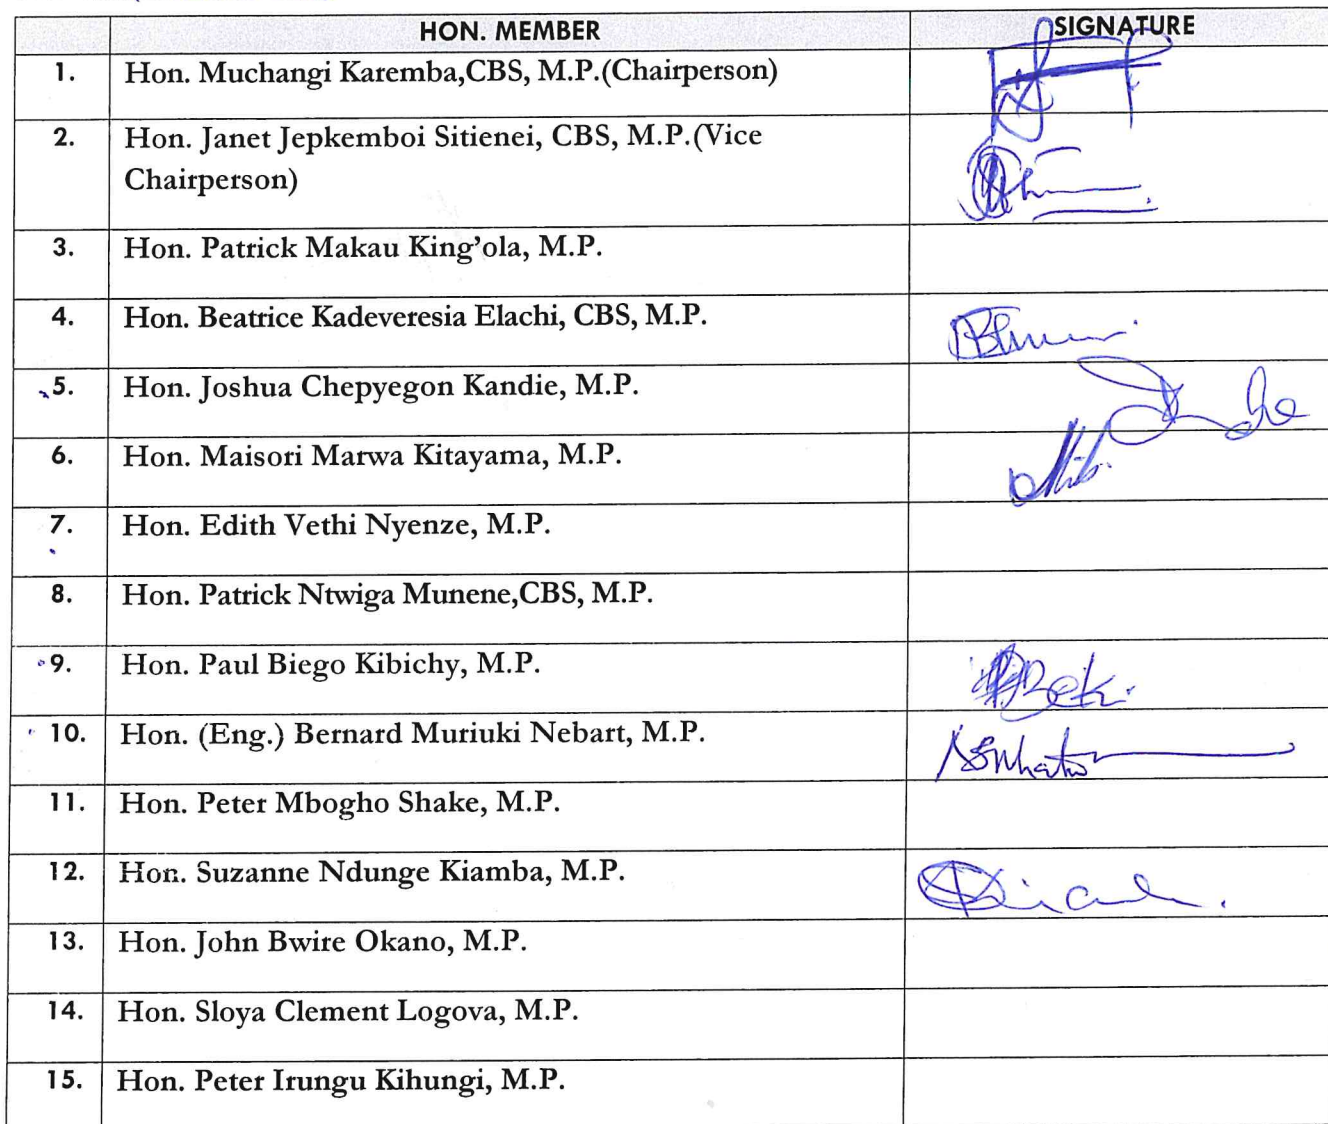 HON. MEMBER SIGNATURE
1. Hon. Muchangi Karemba,CBS, M.P.(Chairperson)
2. Hon. Janet Jepkemboi Sitienei, CBS, M.P.(Vice
Chairperson)
3. Hon. Patrick Makau King’ola, M.P.
4. Hon. Beatrice Kadeveresia Elachi, CBS, M.P.
5. Hon. Joshua Chepyegon Kandie, M.P.
6. Hon. Maisori Marwa Kitayama, M.P.
7. Hon. Edith Vethi Nyenze, M.P.
8. Hon. Patrick Ntwiga Munene,CBS, M.P.
9. Hon. Paul Biego Kibichy, M.P.
10. Hon. (Eng.) Bernard Muriuki Nebart, M.P.
11. Hon. Peter Mbogho Shake, M.P.
12. Hon. Suzanne Ndunge Kiamba, M.P.
13. Hon. John Bwire Okano, M.P.
14. Hon. Sloya Clement Logova, M.P.
15. Hon. Peter Irungu Kihungi, M.P.